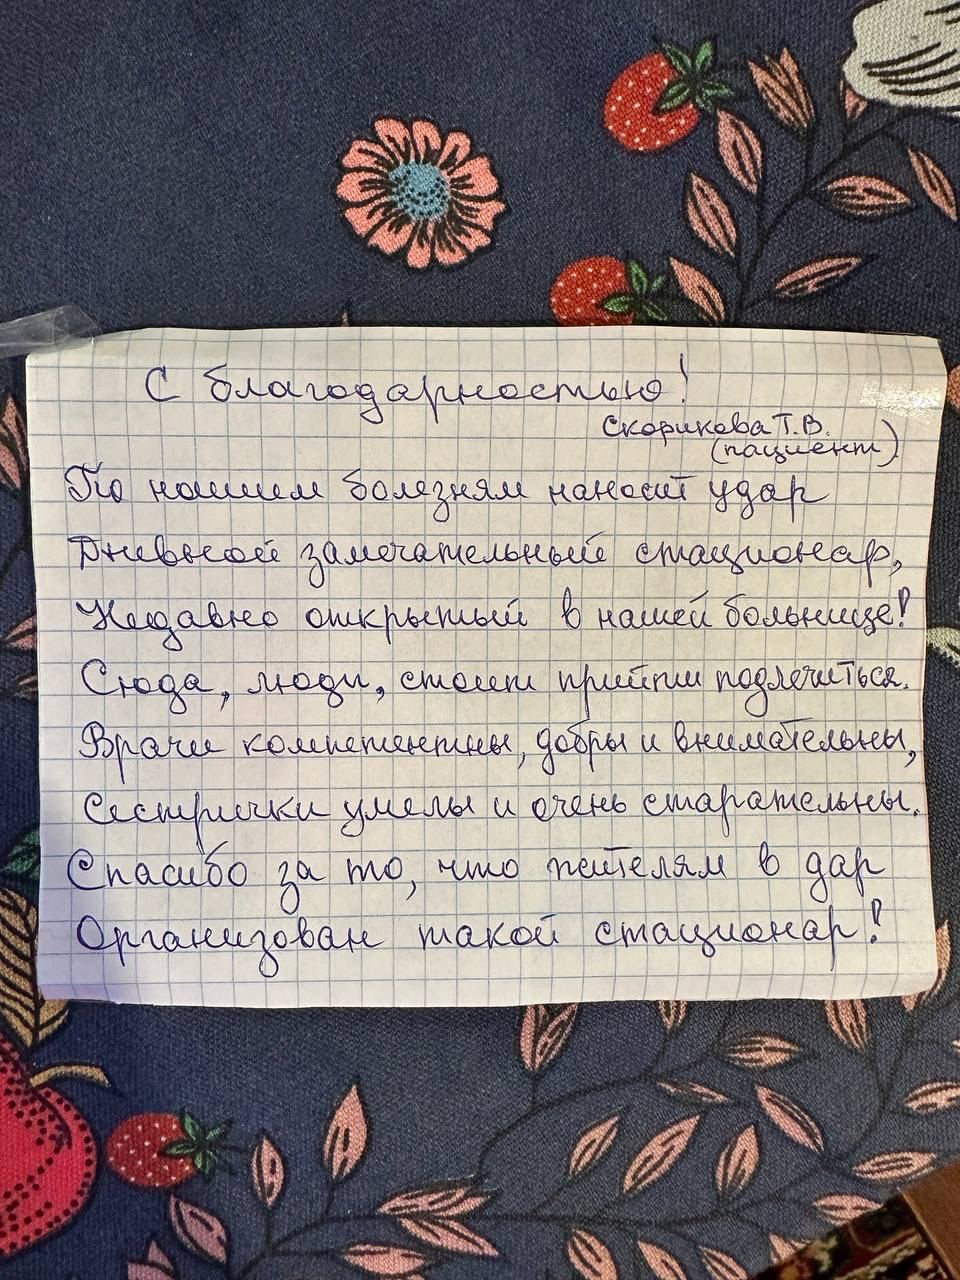 С благодарностью!
Скорикова Т.В.
(пациент)
По нашим болезням наносит удар
Дневной замечательный стационар,
Недавно открытый в нашей больнице!
Сюда, люди, стоит прийти подлечиться.
Врачи компетентны, добры и внимательны,
Сестрички умелы и очень старательны.
Спасибо за то, что жителям в дар
Организован такой стационар!